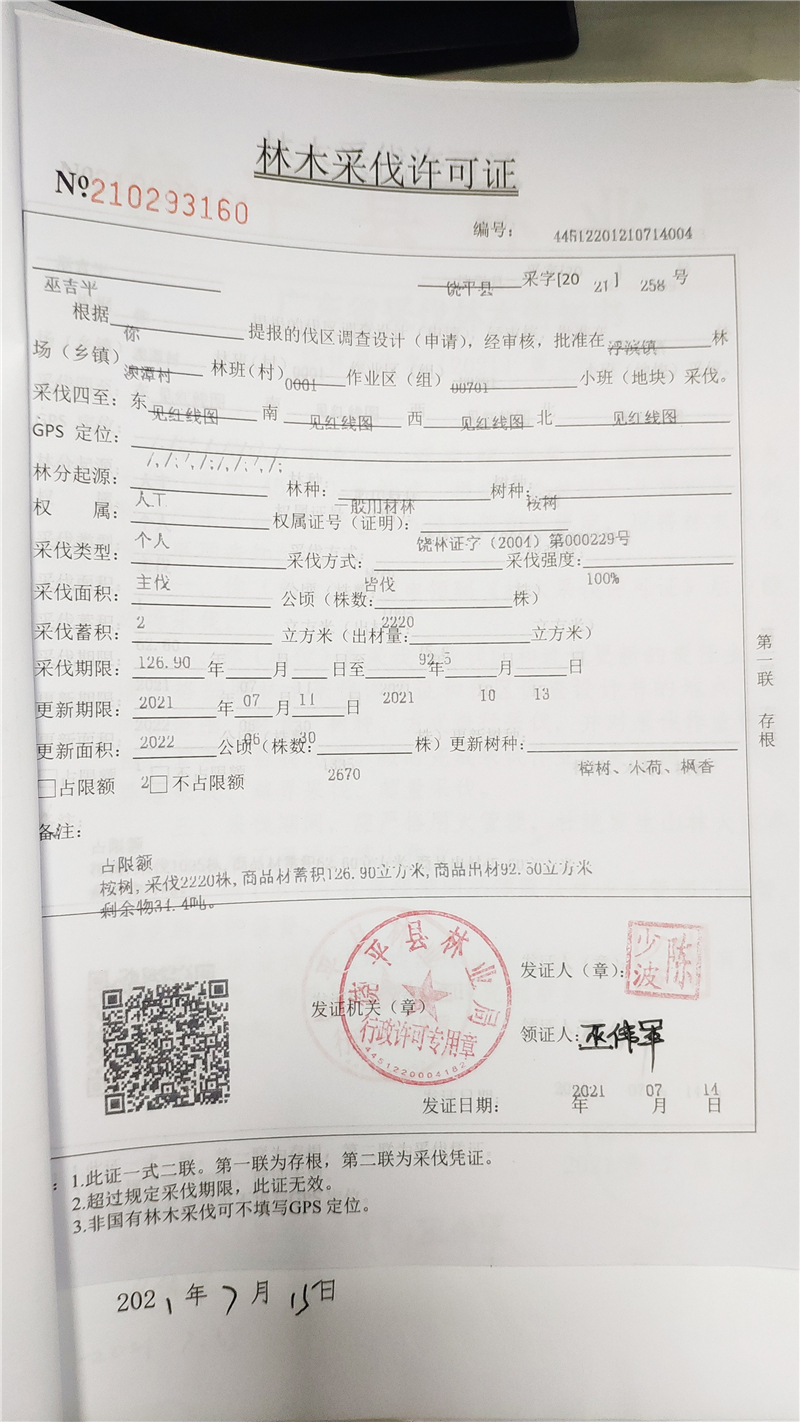 林木采伐许可证
№210293160
编号: 44512201210714004
巫吉平 饶平县 采字[20 21 ] 258 号
根据 你 提报的伐区调查设计（申请），经审核，批准在 浮滨镇 林
场（乡镇） 林班（村） 0001 作业区（组） 00701 小班（地块）采伐。
采伐四至: 东 见红线图 南 见红线图 西 见红线图 北 见红线图
GPS 定位: /,/;/,/;/,/;/,/;
林分起源: 人工 林种: 一般用材林 树种: 桉树
权 属: 个人 权属证号（证明）: 饶林证字（2004）第000229号
采伐类型: 主伐 采伐方式: 皆伐 采伐强度: 100%
采伐面积: 2 公顷（株数: 2220 株）
采伐蓄积: 126.90 立方米（出材量: 92.5 立方米）
采伐期限: 2021 年 07 月 11 日至 2021 年 10 月 13 日
更新期限: 2022 年 06 月 30 日
更新面积: 2 公顷（株数: 2670 株）更新树种: 樟树、木荷、枫香
□占限额 □不占限额
备注:
占限额
桉树, 采伐2220株, 商品材蓄积126.90立方米, 商品出材92.50立方米
剩余物34.4吨。
第一联 存根
饶平县林业局
行政许可专用章
4451220004182
发证机关（章）
发证人（章）: 陈少波
领证人: 巫伟军
发证日期: 2021 年 07 月 14 日
: 1.此证一式二联。第一联为存根，第二联为采伐凭证。
2.超过规定采伐期限，此证无效。
3.非国有林木采伐可不填写GPS 定位。
2021 年 7 月 15日